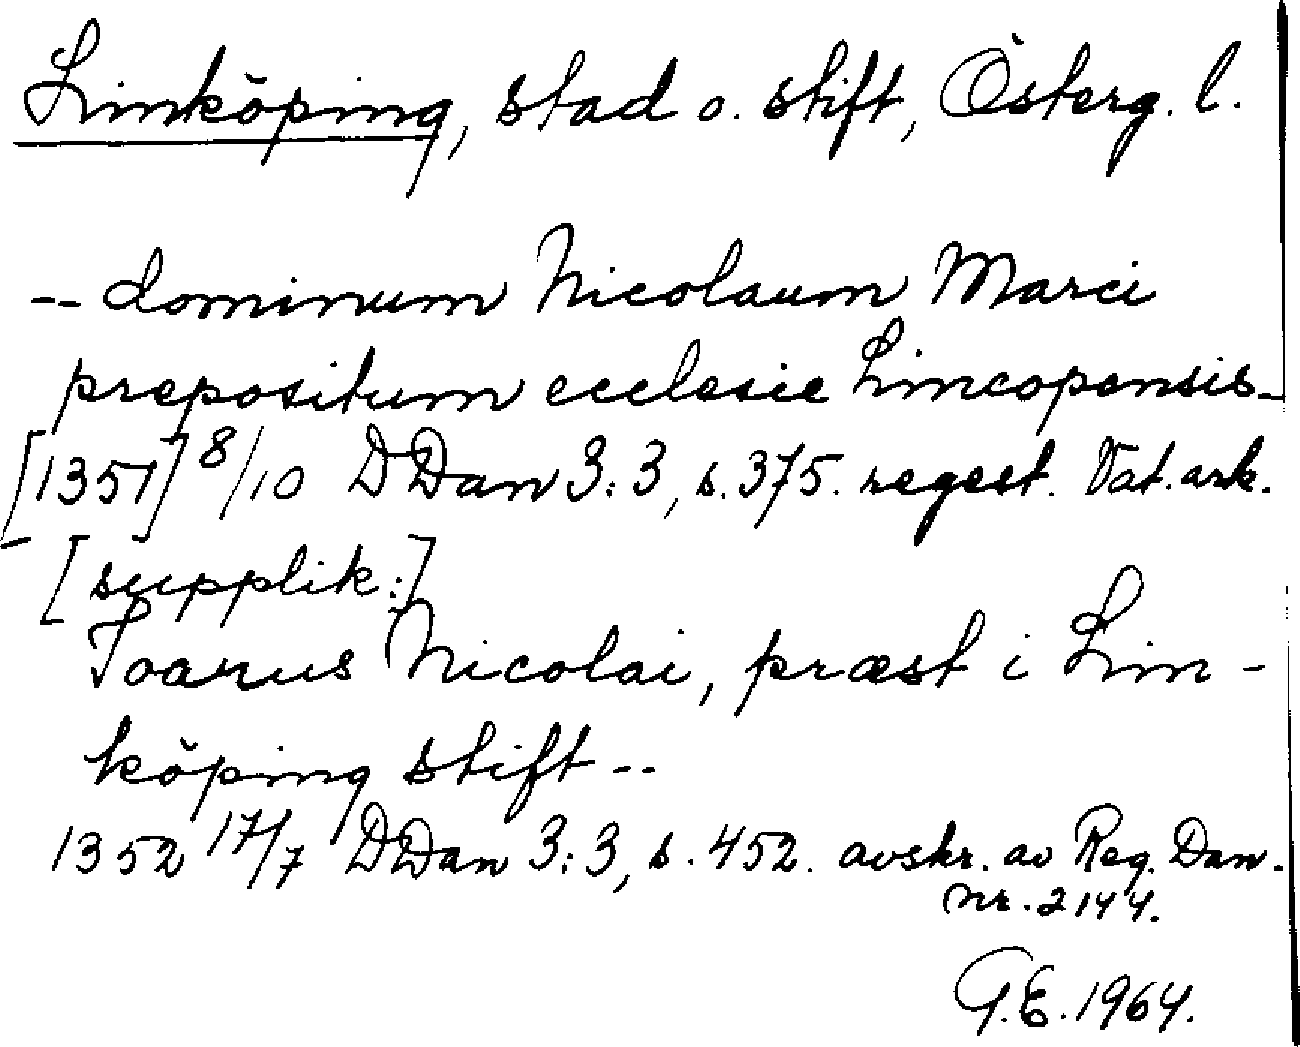 Linköping, stad o. stift, Österg. l.
-- dominum Nicolaum Marci
prepositum ecclesie Lincopensis -
[1351] 8/10 DDan 3:3, s. 375. regest. Vat. ark.
[supplik:]
Toarus Nicolai, præst i Lin-
köping stift --
1352 17/7 DDan 3:3, s. 452. avskr. av Reg. Dan.
nr. 2144.
G.E. 1964.